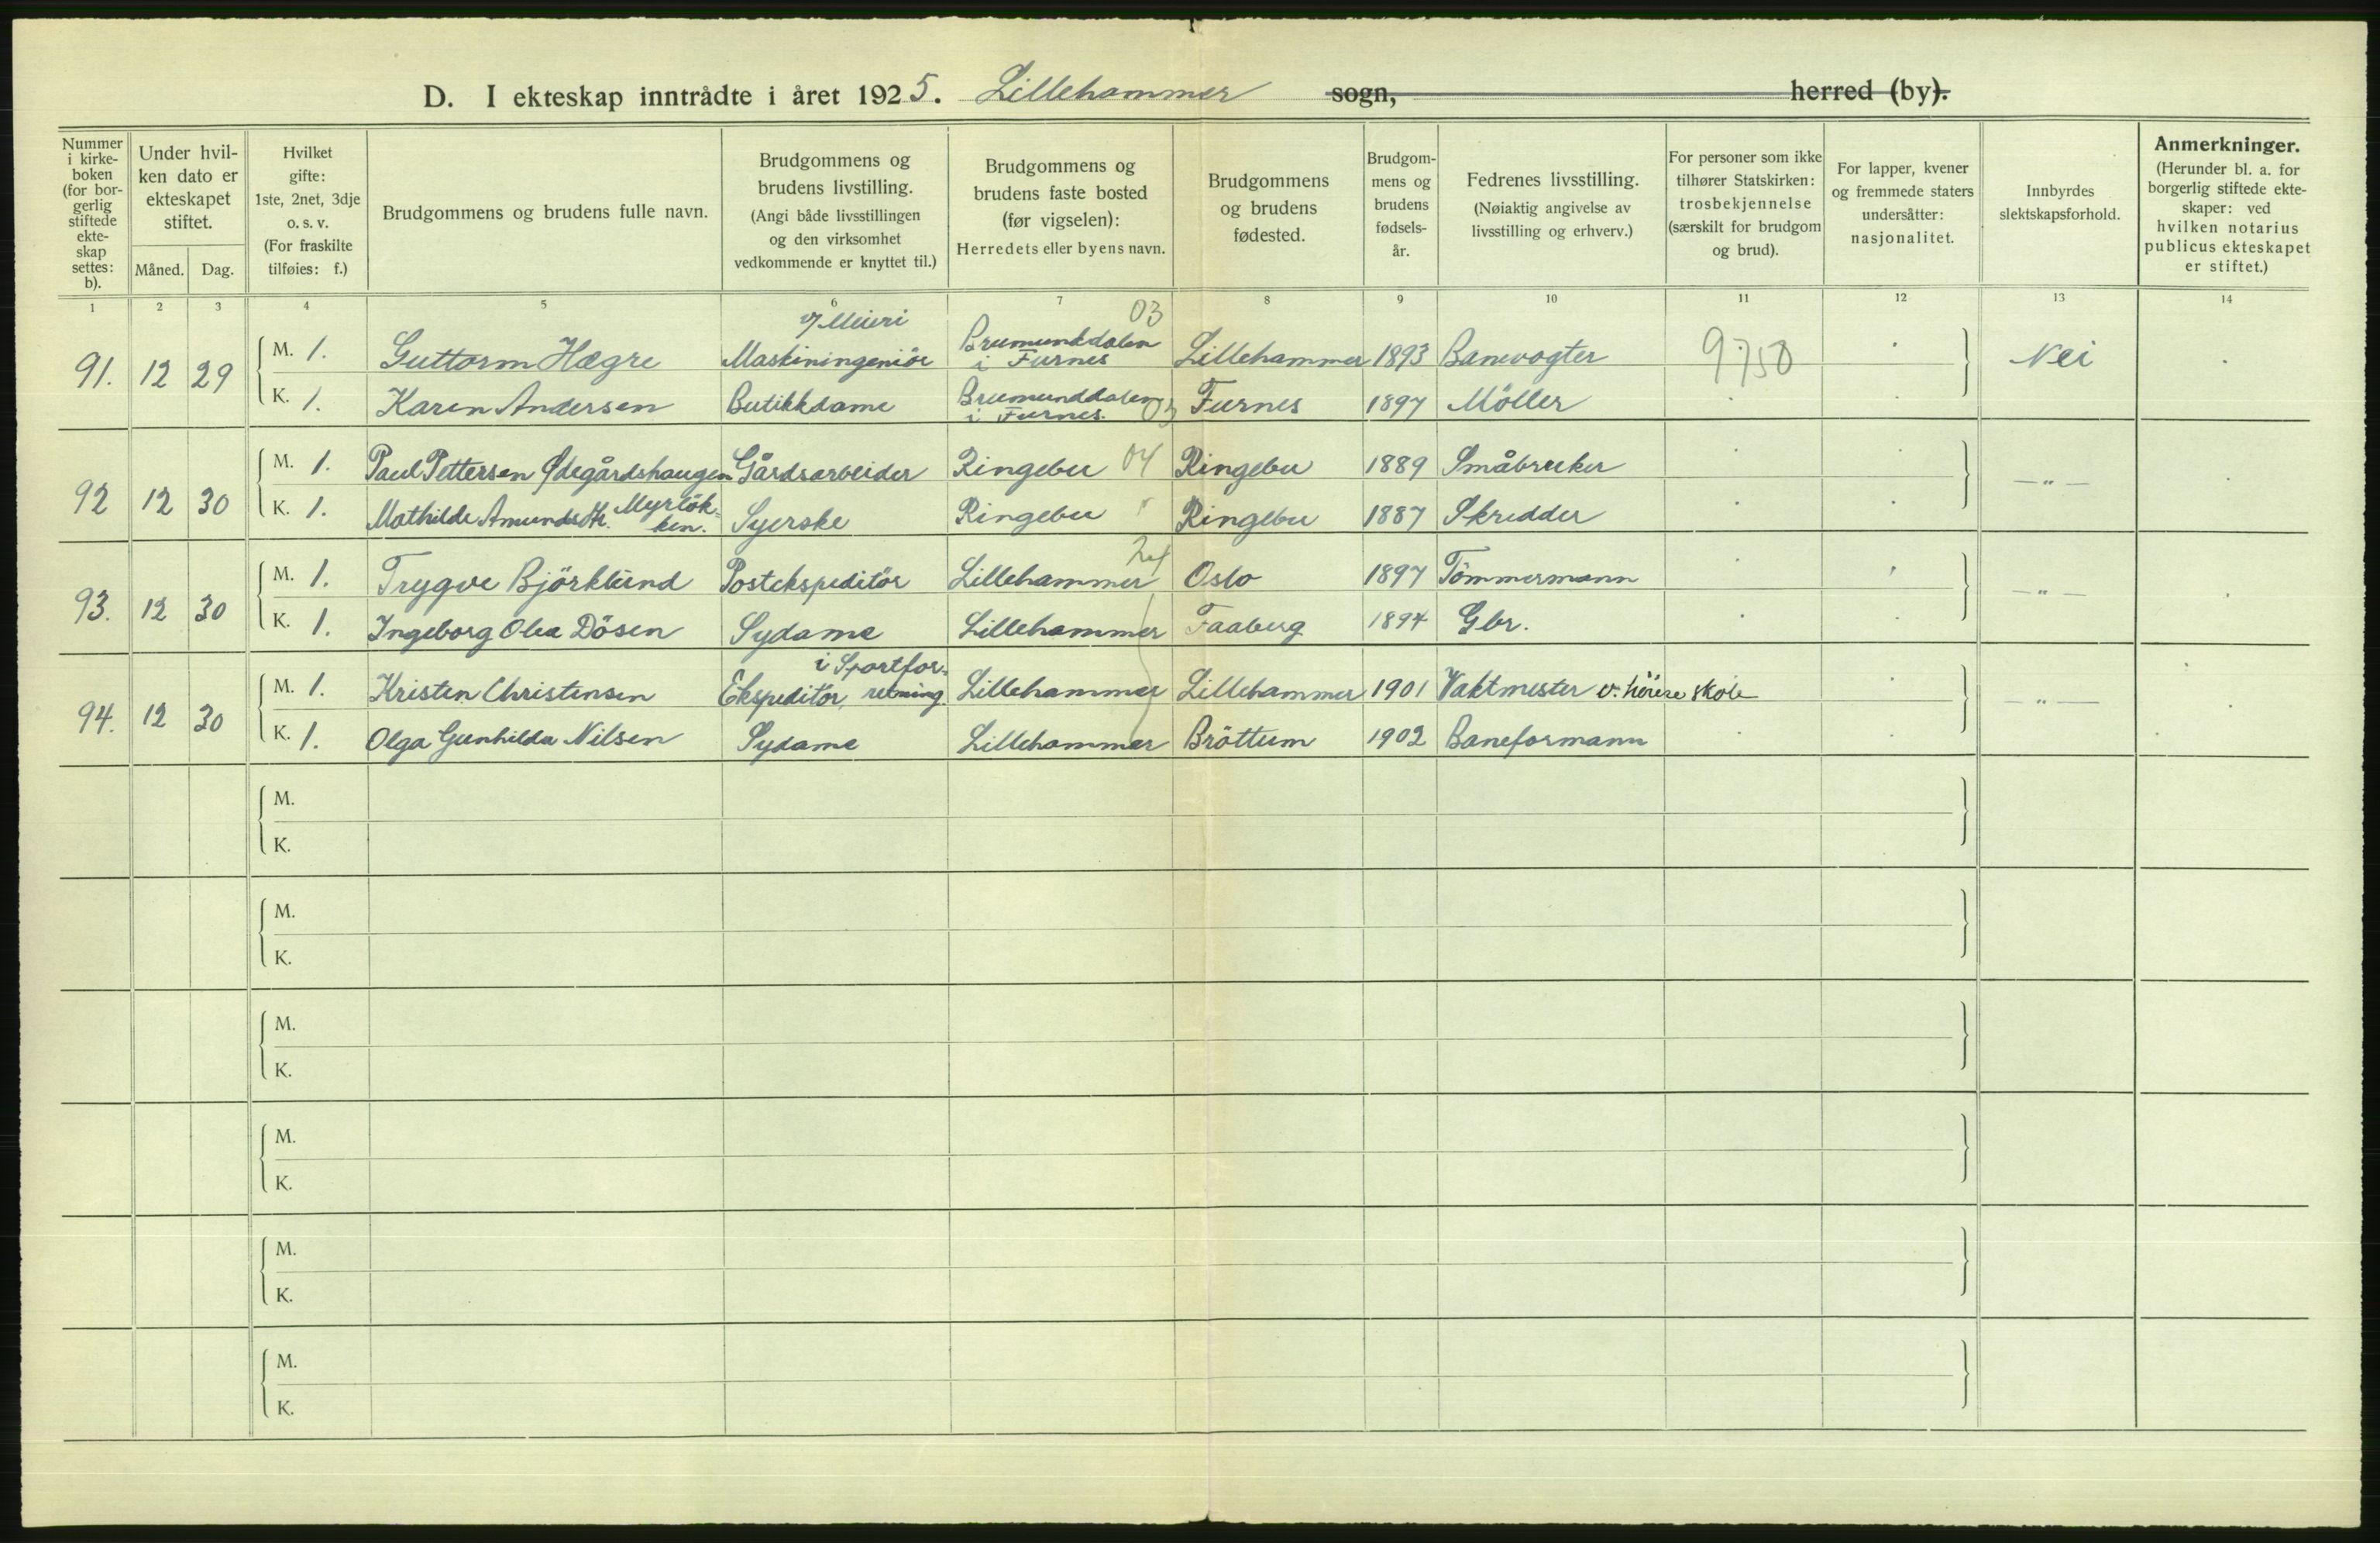 D. I ekteskap inntrådte i året 1925. Lillehammer sogn, herred (by).
Nummer i kirke-boken (for bor-gerlig stiftede ekte-skap settes: b).
Under hvil-ken dato er ekteskapet stiftet.
Måned. Dag.
Hvilket gifte: 1ste, 2net, 3dje o. s. v. (For fraskilte tilføies: f.)
Brudgommens og brudens fulle navn.
Brudgommens og brudens livstilling. (Angi både livsstillingen og den virksomhet vedkommende er knyttet til.)
Brudgommens og brudens faste bosted (før vigselen): Herredets eller byens navn.
Brudgommens og brudens fødested.
Brudgom-mens og brudens fødsels-år.
Fedrenes livsstilling. (Nøiaktig angivelse av livsstilling og erhverv.)
For personer som ikke tilhører Statskirken: trosbekjennelse (særskilt for brudgom og brud).
For lapper, kvener og fremmede staters undersåtter: nasjonalitet.
Innbyrdes slektskapsforhold.
Anmerkninger. (Herunder bl. a. for borgerlig stiftede ekte-skaper: ved hvilken notarius publicus ekteskapet er stiftet.)
1 2 3 4 5 6 7 8 9 10 11 12 13 14
91. 12 29 M. 1. Guttorm Hægre Maskiningeniör v/ Meieri Brumunddalen i Furnes 03 Lillehammer 1893 Banevogter 9750 Nei
K. 1. Karen Andersen Butikkdame Brumunddalen i Furnes. 03 Furnes 1897 Möller
92 12 30 M. 1. Paul Pettersen Ødegårdshaugen Gårdsarbeider Ringebu 04 Ringebu 1889 Småbruker — " —
K. 1. Mathilde Amundsdtr. Myrlök-ken. Syerske Ringebu " Ringebu 1887 Skredder
93. 12 30 M. 1. Trygve Björklund Postekspeditör Lillehammer 24 Oslo 1897 Tömmermann — " —
K. 1. Ingeborg Olea Dösen Sydame Lillehammer Faaberg 1894 Gbr.
94. 12 30 M. 1. Kristen Christensen Ekspeditör i Sportfor-retning. Lillehammer Lillehammer 1901 Vaktmester v. höiere skole — " —
K. 1. Olga Gunhilda Nilsen Sydame Lillehammer Bröttum 1902 Baneformann
M.
K.
M.
K.
M.
K.
M.
K.
M.
K.
M.
K.